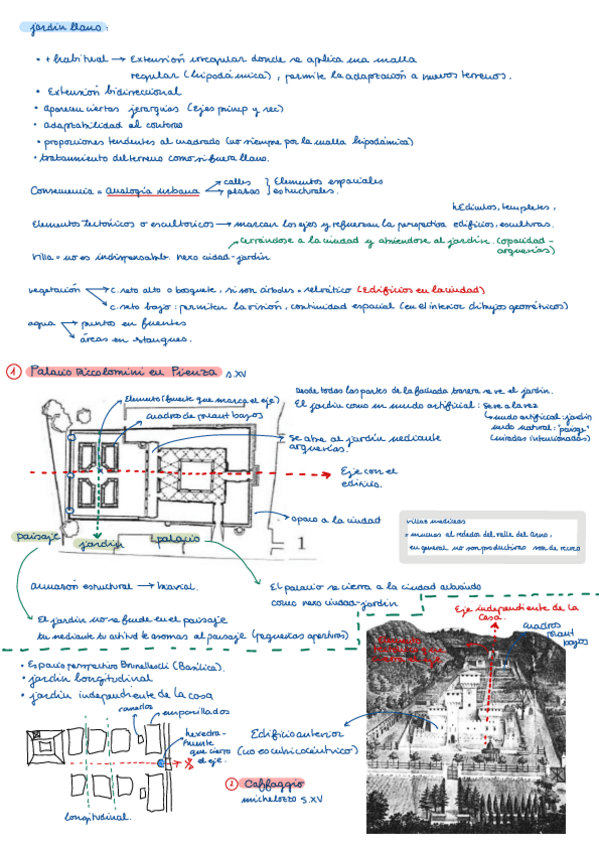 jardín llano:
• + habitual → Extensión irregular donde se aplica una malla
regular (hipodámica), permite la adaptación a nuevos terrenos.
• Extensión bidireccional
• aparecen ciertas jerarquías (Ejes princip y sec)
• adaptabilidad al contorno
• proporciones tendentes al cuadrado (no siempre por la malla hipodámica)
• tratamiento del terreno como si fuera llano.
Consecuencia = analogía urbana → calles → plazas } Elementos espaciales estructurales.
templetes,
Elementos tectónicos o escultóricos → marcan los ejes y refuerzan la perspectiva edificios, esculturas.
cerrándose a la ciudad y abriéndose al jardín. (opacidad-
arquerías)
villa = no es indispensable. nexo ciudad-jardín
vegetación → c. seto alto o bosquete, si son árboles = selvático (Edificios en la ciudad)
→ c. seto bajo: permiten la visión, continuidad espacial (en el interior dibujos geométricos)
agua → puntos en fuentes
→ áreas en estanques.
① Palacio Piccolomini en Pienza s.XV
elemento (fuente que marca el eje)
cuadro de plant bajos
Desde todas las partes de la fachada trasera se ve el jardín.
El jardín como un mundo artificial: se ve a la vez
mundo artificial: jardín
mundo natural: "paisaje"
(miradas intencionadas)
se abre al jardín mediante
arquerías.
Eje con el
edificio.
opaco a la ciudad
1
paisaje
jardín
palacio
villas mediceas
= muchas al rededor del valle del Arno,
en general no son productivas son de recreo
armazón estructural → biaxial.
El palacio se cierra a la ciudad actuando
como nexo ciudad-jardín
El jardín no se funde en el paisaje
sino mediante tu actitud te asomas al paisaje (pequeñas aperturas)
Eje independiente de la
casa.
cuadros
plant
bajos
• Espacio perspectivo Brunelleschi (Basílica).
• jardín longitudinal
• jardín independiente de la casa
emparrillados
hexedra-
fuente
que cierra
el eje.
Edificio anterior
(no es cubicocéntrico)
② Caffaggio
michelozzo s.XV
longitudinal.